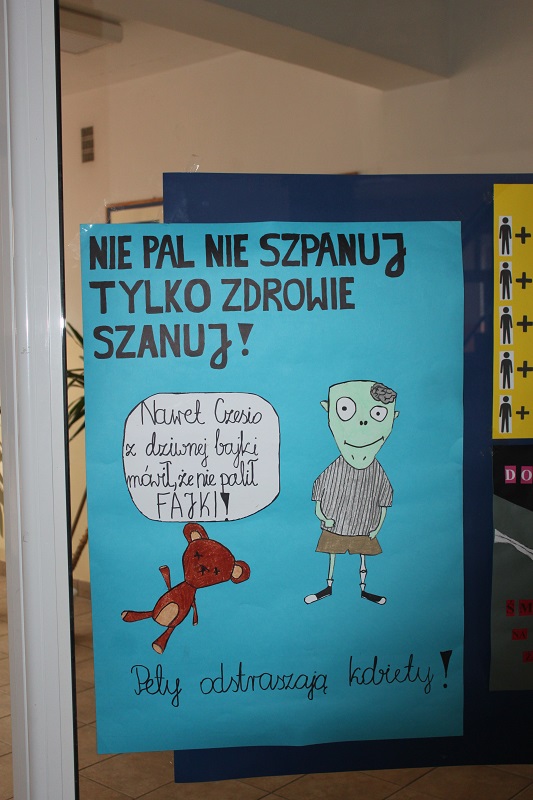 NIE PAL NIE SZPANUJ
TYLKO ZDROWIE
SZANUJ!
Nawet Czesio
z dziwnej bajki
mówił, że nie palił
FAJKI!
Pety odstraszają kobiety!
+
+
+
+
+
DO
ŚM
NA